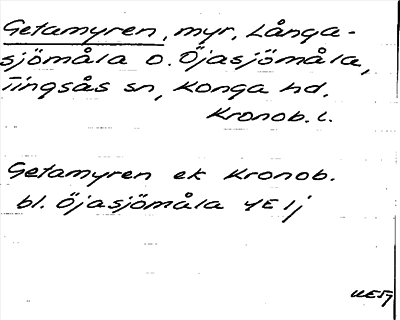 Getamyren, myr, Långa-
sjömåla o. Öjasjömåla,
Tingsås sn, Konga hd.
Kronob. l.
Getamyren ek Kronob.
bl. Öjasjömåla 4E 1j